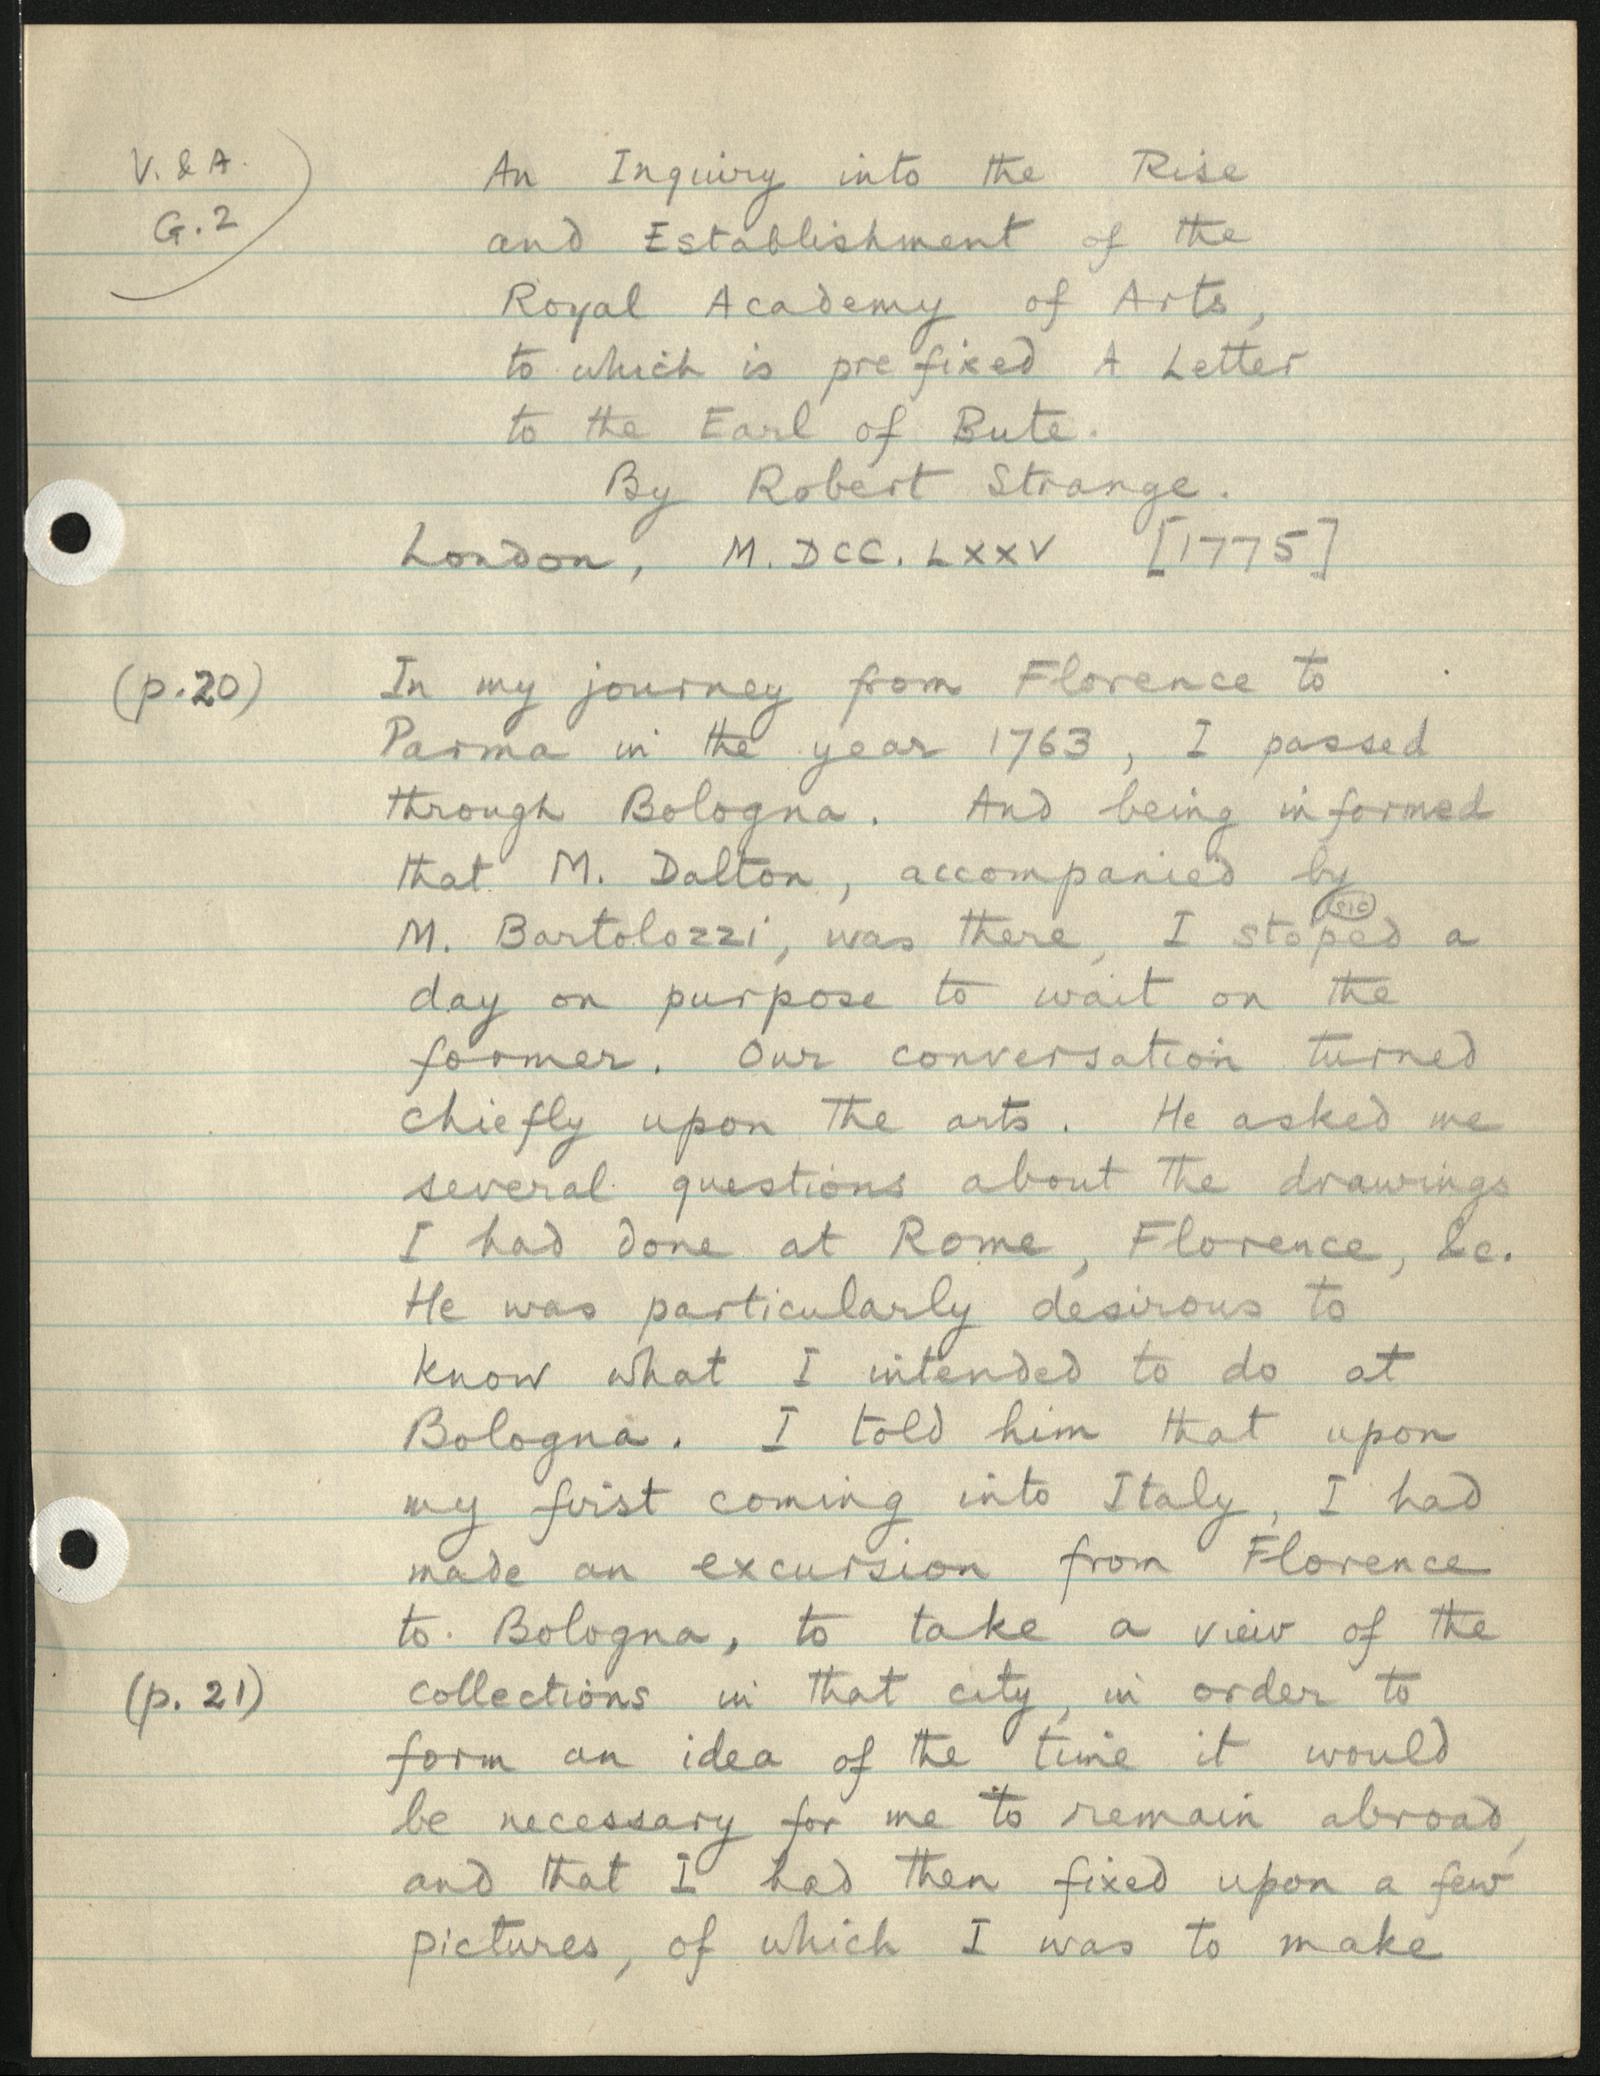 V. & A.
G. 2
An Inquiry into the Rise
and Establishment of the
Royal Academy of Arts,
to which is prefixed A Letter
to the Earl of Bute.
By Robert Strange.
London, M. DCC. LXXV [1775]
(p. 20) In my journey from Florence to
Parma in the year 1763, I passed
through Bologna. And being informed
that M. Dalton, accompanied by
M. Bartolozzi, was there, I stoped (sic) a
day on purpose to wait on the
former. Our conversation turned
chiefly upon the arts. He asked me
several questions about the drawings
I had done at Rome, Florence, &c.
He was particularly desirous to
know what I intended to do at
Bologna. I told him that upon
my first coming into Italy, I had
made an excursion from Florence
to Bologna, to take a view of the
(p. 21) collections in that city, in order to
form an idea of the time it would
be necessary for me to remain abroad,
and that I had then fixed upon a few
pictures, of which I was to make